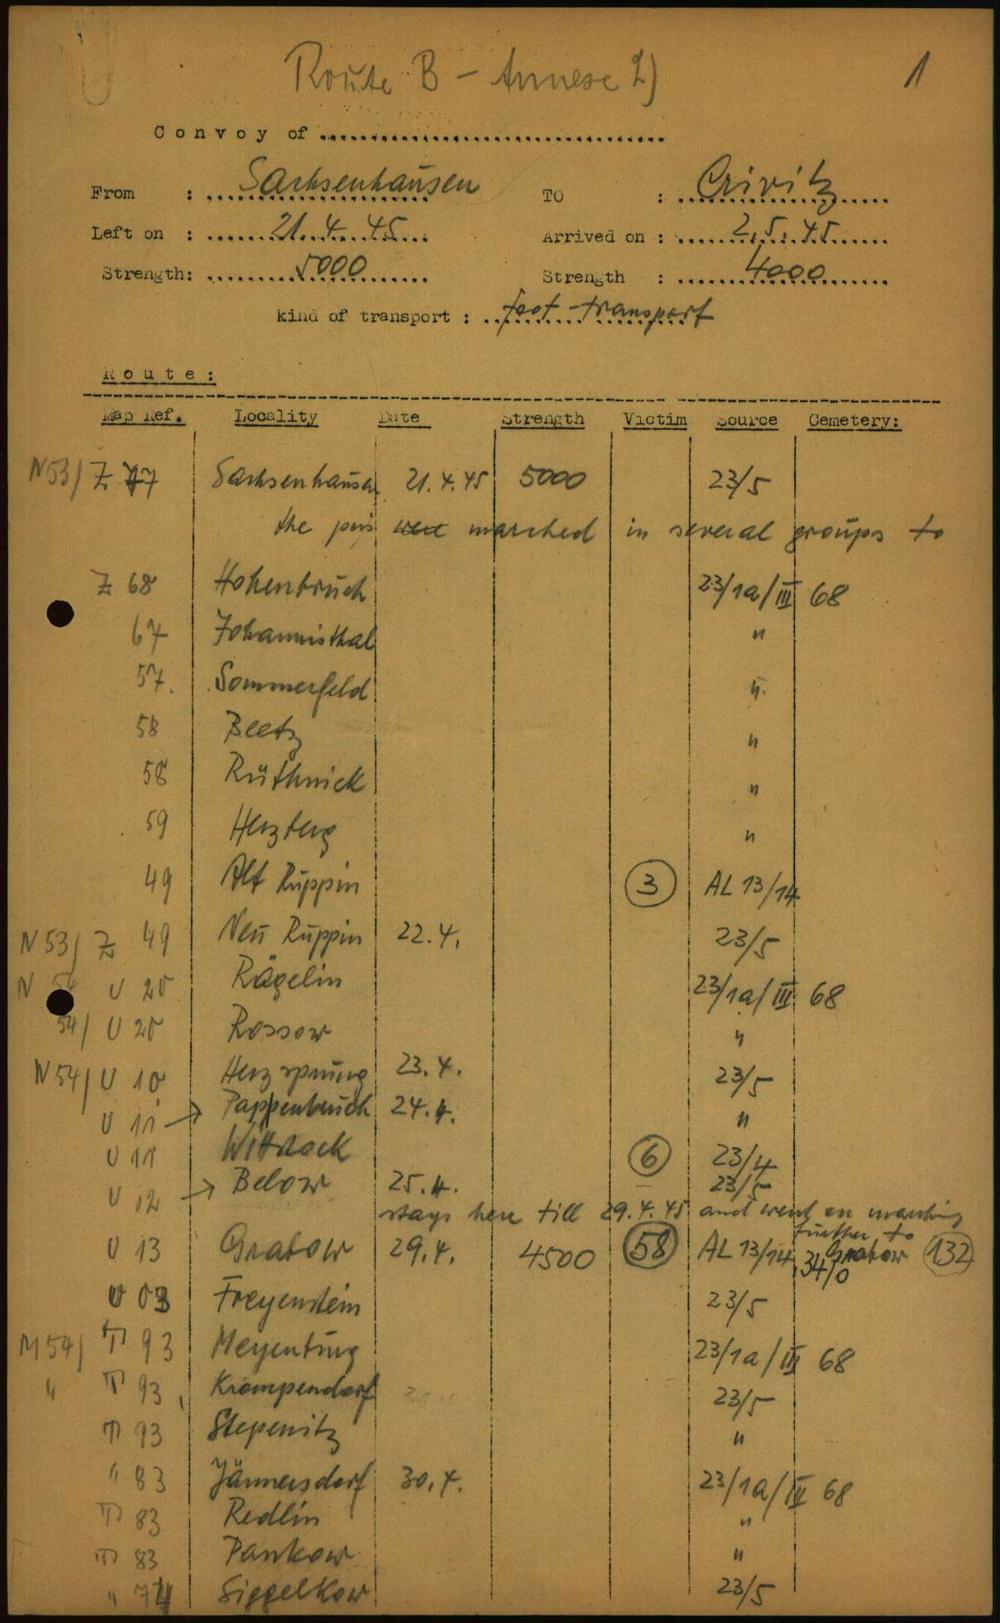 Route B - Annexe 2)
1
Convoy of ....................................
From : Sachsenhausen TO : Crivitz
Left on : 21.4.45 Arrived on : 2.5.45
Strength: 5000 Strength : 4000
kind of transport : foot-transport
Route:
Map Ref. Locality Date Strength Victim Source Cemetery:
N53/ Z 77 Sachsenhausen 21.4.45 5000 23/5
the pris were marched in several groups to
Z 68 Hohenbruch 23/1a/III 68
67 Johannisthal "
57. Sommerfeld "
58 Beetz "
58 Rüthnick "
59 Herzberg "
49 Alt Ruppin 3 AL 13/14
N53/ Z 49 Neu Ruppin 22.4. 23/5
N 54 U 20 Rägelin 23/1a/III 68
54/ U 20 Rossow "
N54/ U 10 Herzsprung 23.4. 23/5
U 11 → Pappenbruch 24.4. "
U 11 Wittstock 6 23/4
U 12 → Below 25.4. 23/5
stays here till 29.4.45 and went on marching
further to
U 13 Grabow 29.4. 4500 58 AL 13/14, 34/0 Grabow 132
U 03 Freyenstein 23/5
M54/ T 93 Meyenburg 23/1a/III 68
" T 93 Krempendorf 23/5
T 93 Stepenitz "
" 83 Jännersdorf 30.4. 23/1a/III 68
T 83 Redlin "
T 83 Pankow "
" 74 Siggelkow 23/5